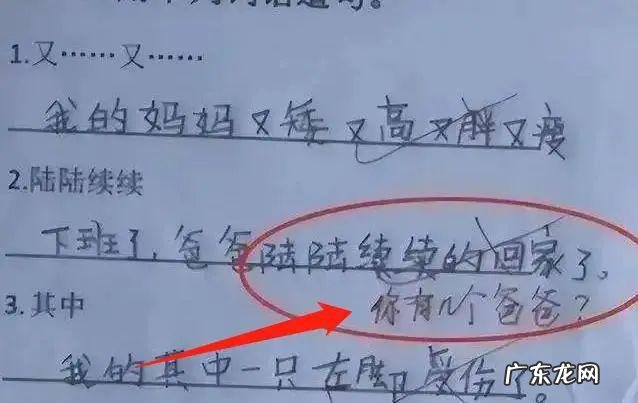 1.又……又……
我的妈妈又矮又高又胖又瘦
2.陆陆续续
下班了,爸爸陆陆续续的回家了。
你有几个爸爸?
3.其中
我的其中一只左脚受伤了。
广东龙网